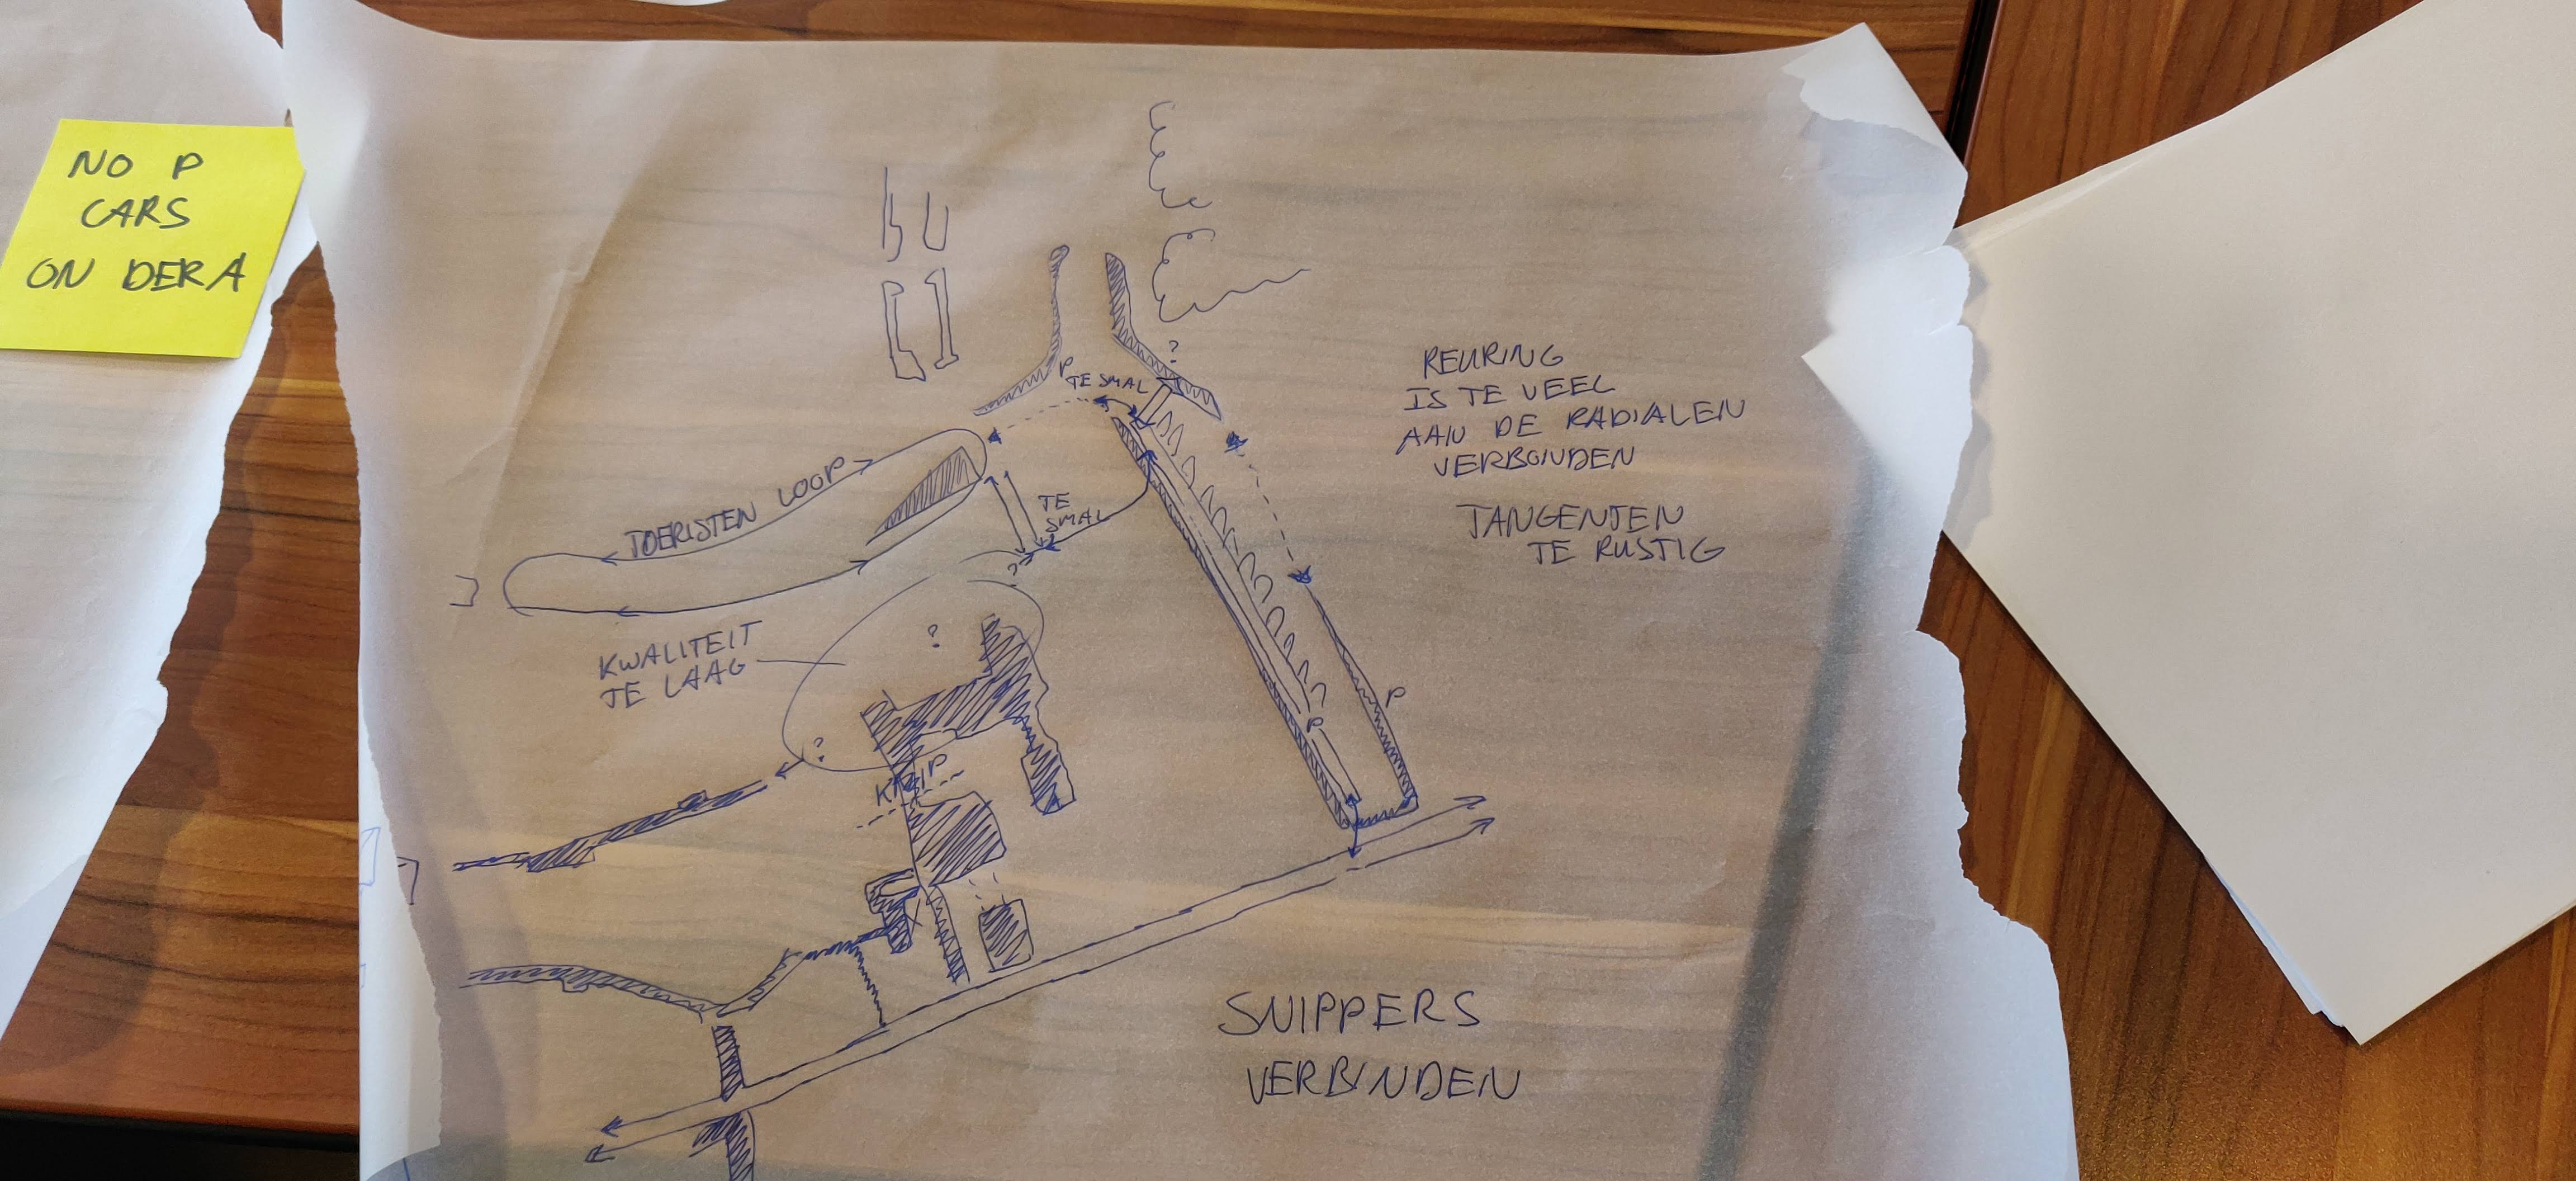 NO P
CARS
ON DER A
?
P
TE SMAL
REURING
IS TE VEEL
AAN DE RADIALEN
VERBONDEN
TOERISTEN LOOP
TE
SMAL
TANGENTEN
TE RUSTIG
?
KWALITEIT
TE LAAG
?
P
P
?
KNIP
SNIPPERS
VERBINDEN